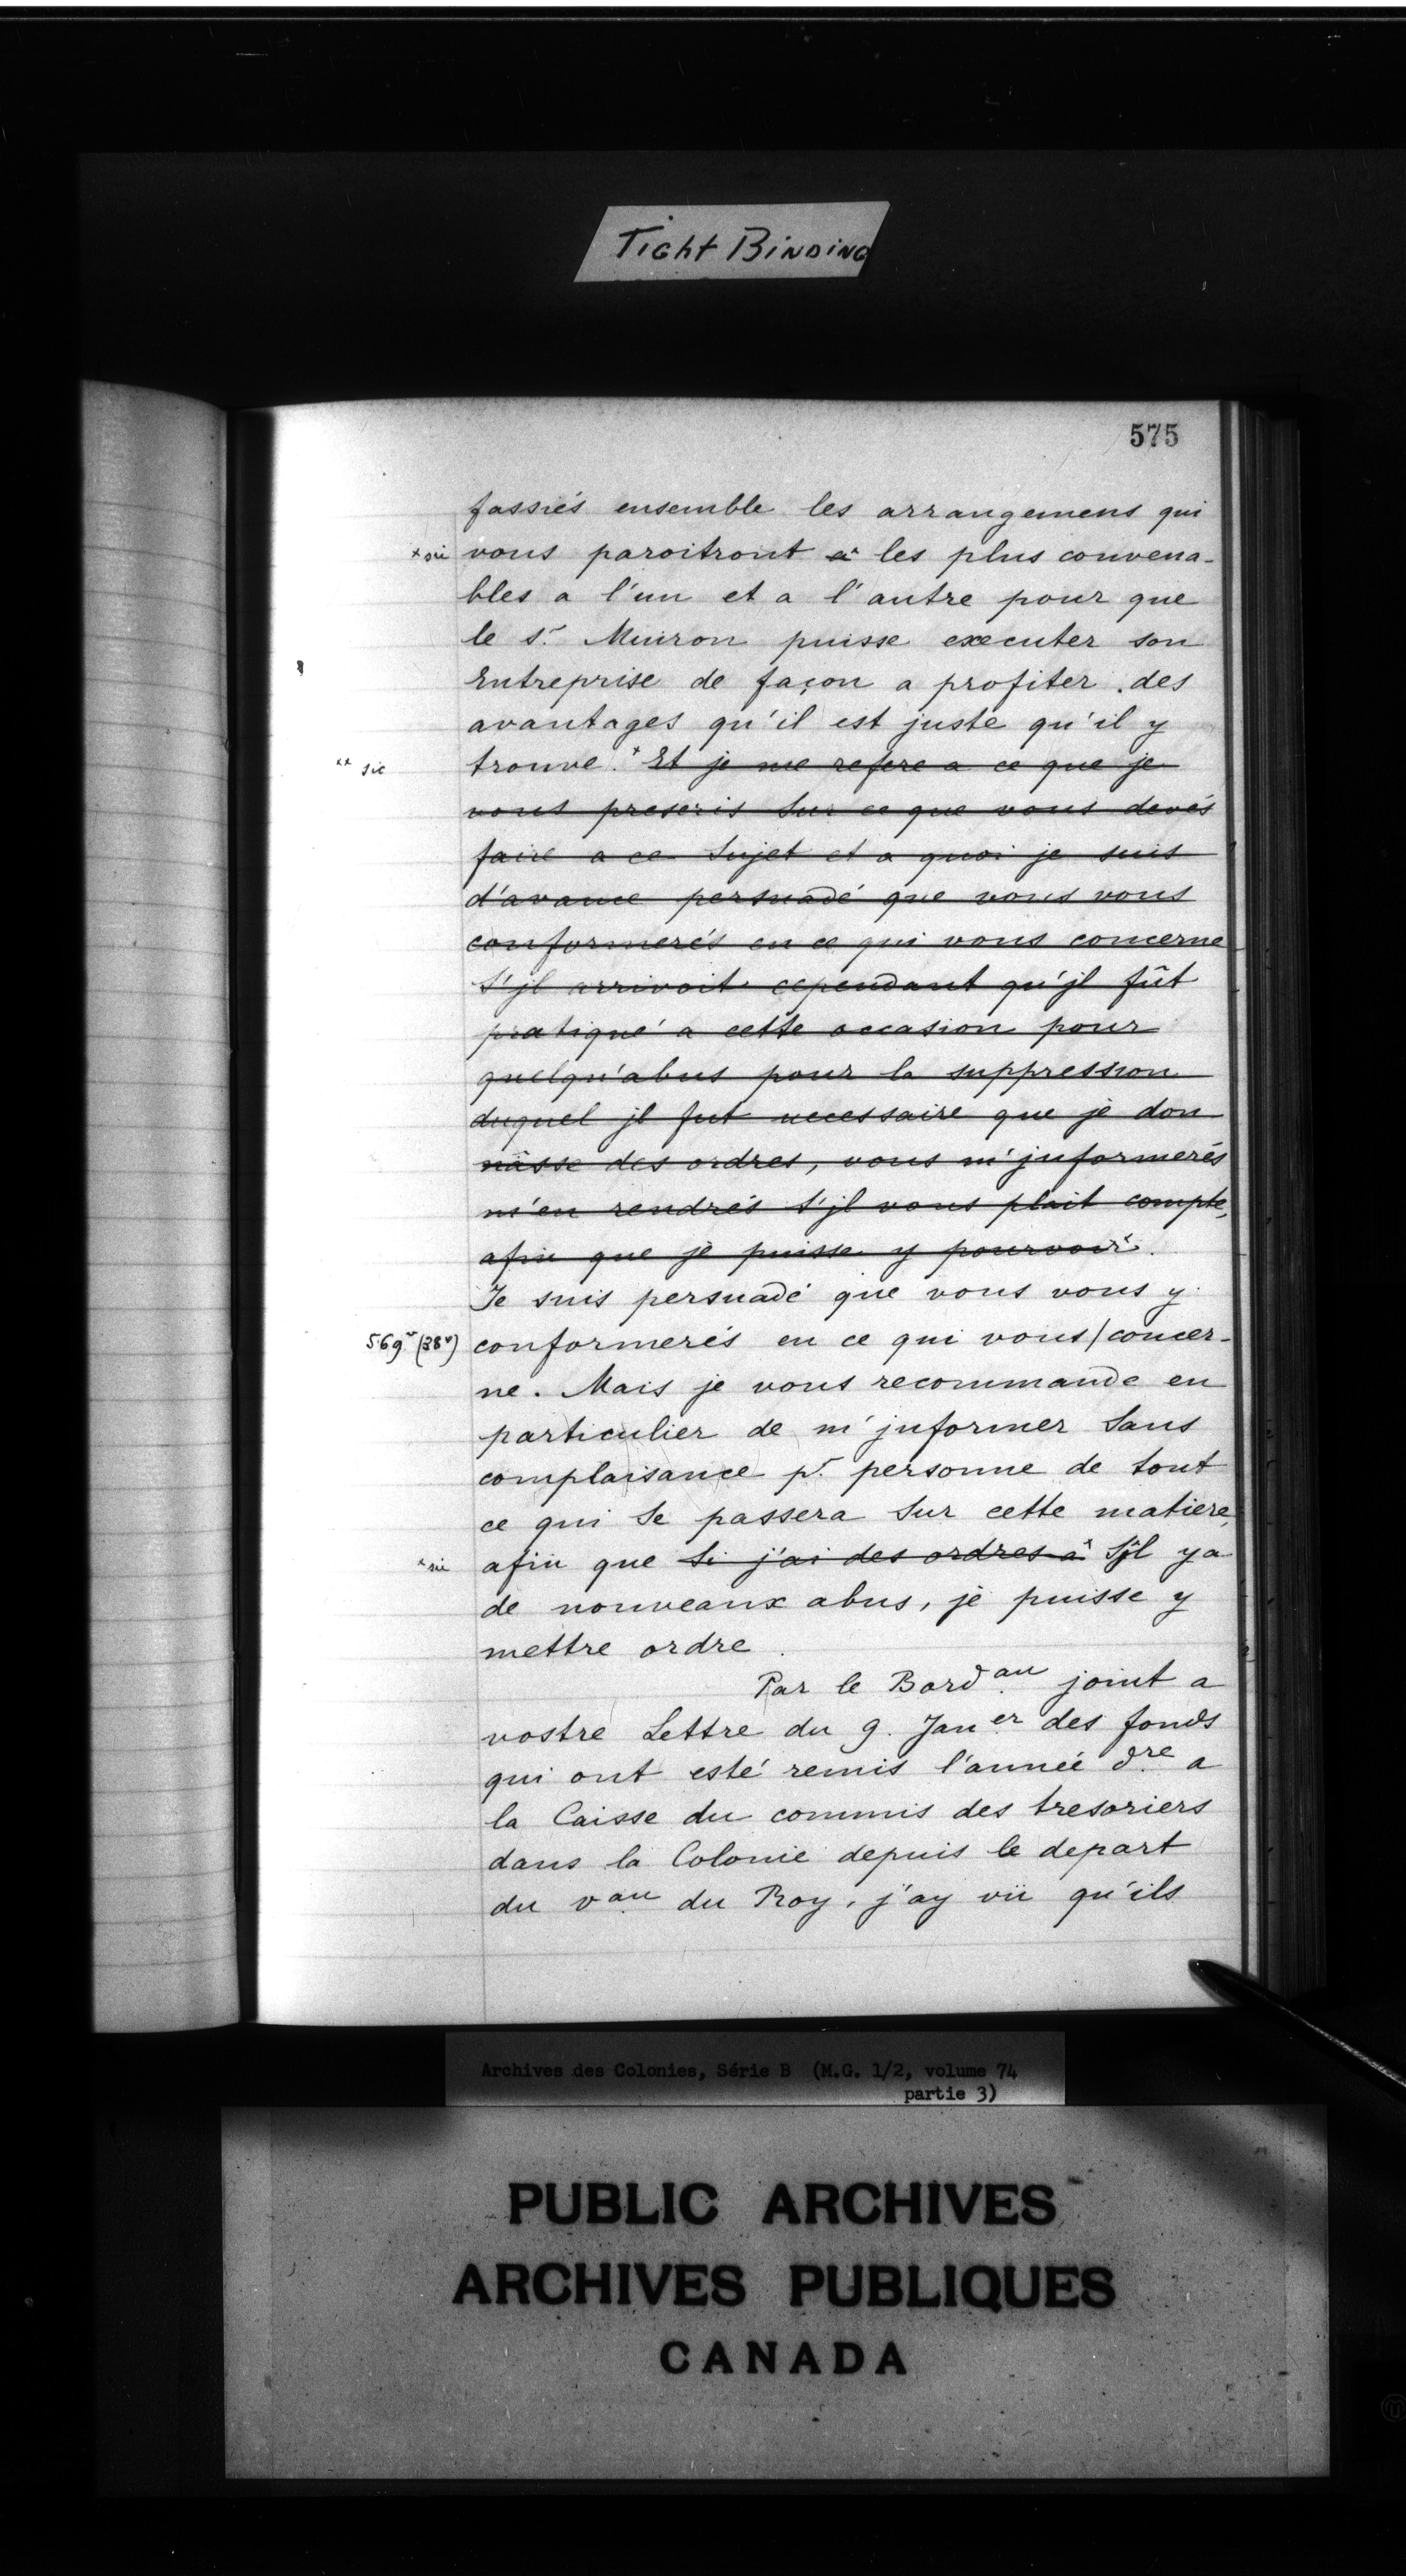 Tight Binding
575
fassiés ensemble les arrangemens qui
*sic vous paroitront a* les plus convena-
bles a l'un et a l'autre pour que
le sr. Muiron puisse executer son
Entreprise de façon a profiter des
avantages qu'il est juste qu'il y
** sic trouve.* Et je me refere a ce que je
vous prescris sur ce que vous devés
faire a ce Sujet et a quoi je suis
d'avance persuadé que vous vous
conformerés en ce qui vous concerne
S'jl arrivoit cependant qu'jl fût
pratiqué a cette occasion pour
quelqu'abus pour la suppression
duquel jl fut necessaire que je don
nâsse des ordres, vous m'jnformerés
m'en rendrés s'jl vous plait compte,
afin que je puisse y pourvoir.
Je suis persuadé que vous vous y
569v (38v) conformerés en ce qui vous/concer-
ne. Mais je vous recommande en
particulier de m'jnformer Sans
complaisance pr. personne de tout
ce qui Se passera Sur cette matiere,
*sic afin que Si j'ai des ordres a* Sjl y a
de nouveaux abus, je puisse y
mettre ordre.
Par le Bord.au joint a
vostre Lettre du 9. Jan.er des fonds
qui ont esté remis l'année d.re a
la Caisse du commis des tresoriers
dans la Colonie depuis le depart
du v.au du Roy, j'ay vü qu'ils
Archives des Colonies, Série B (M.G. 1/2, volume 74
partie 3)
PUBLIC ARCHIVES
ARCHIVES PUBLIQUES
CANADA